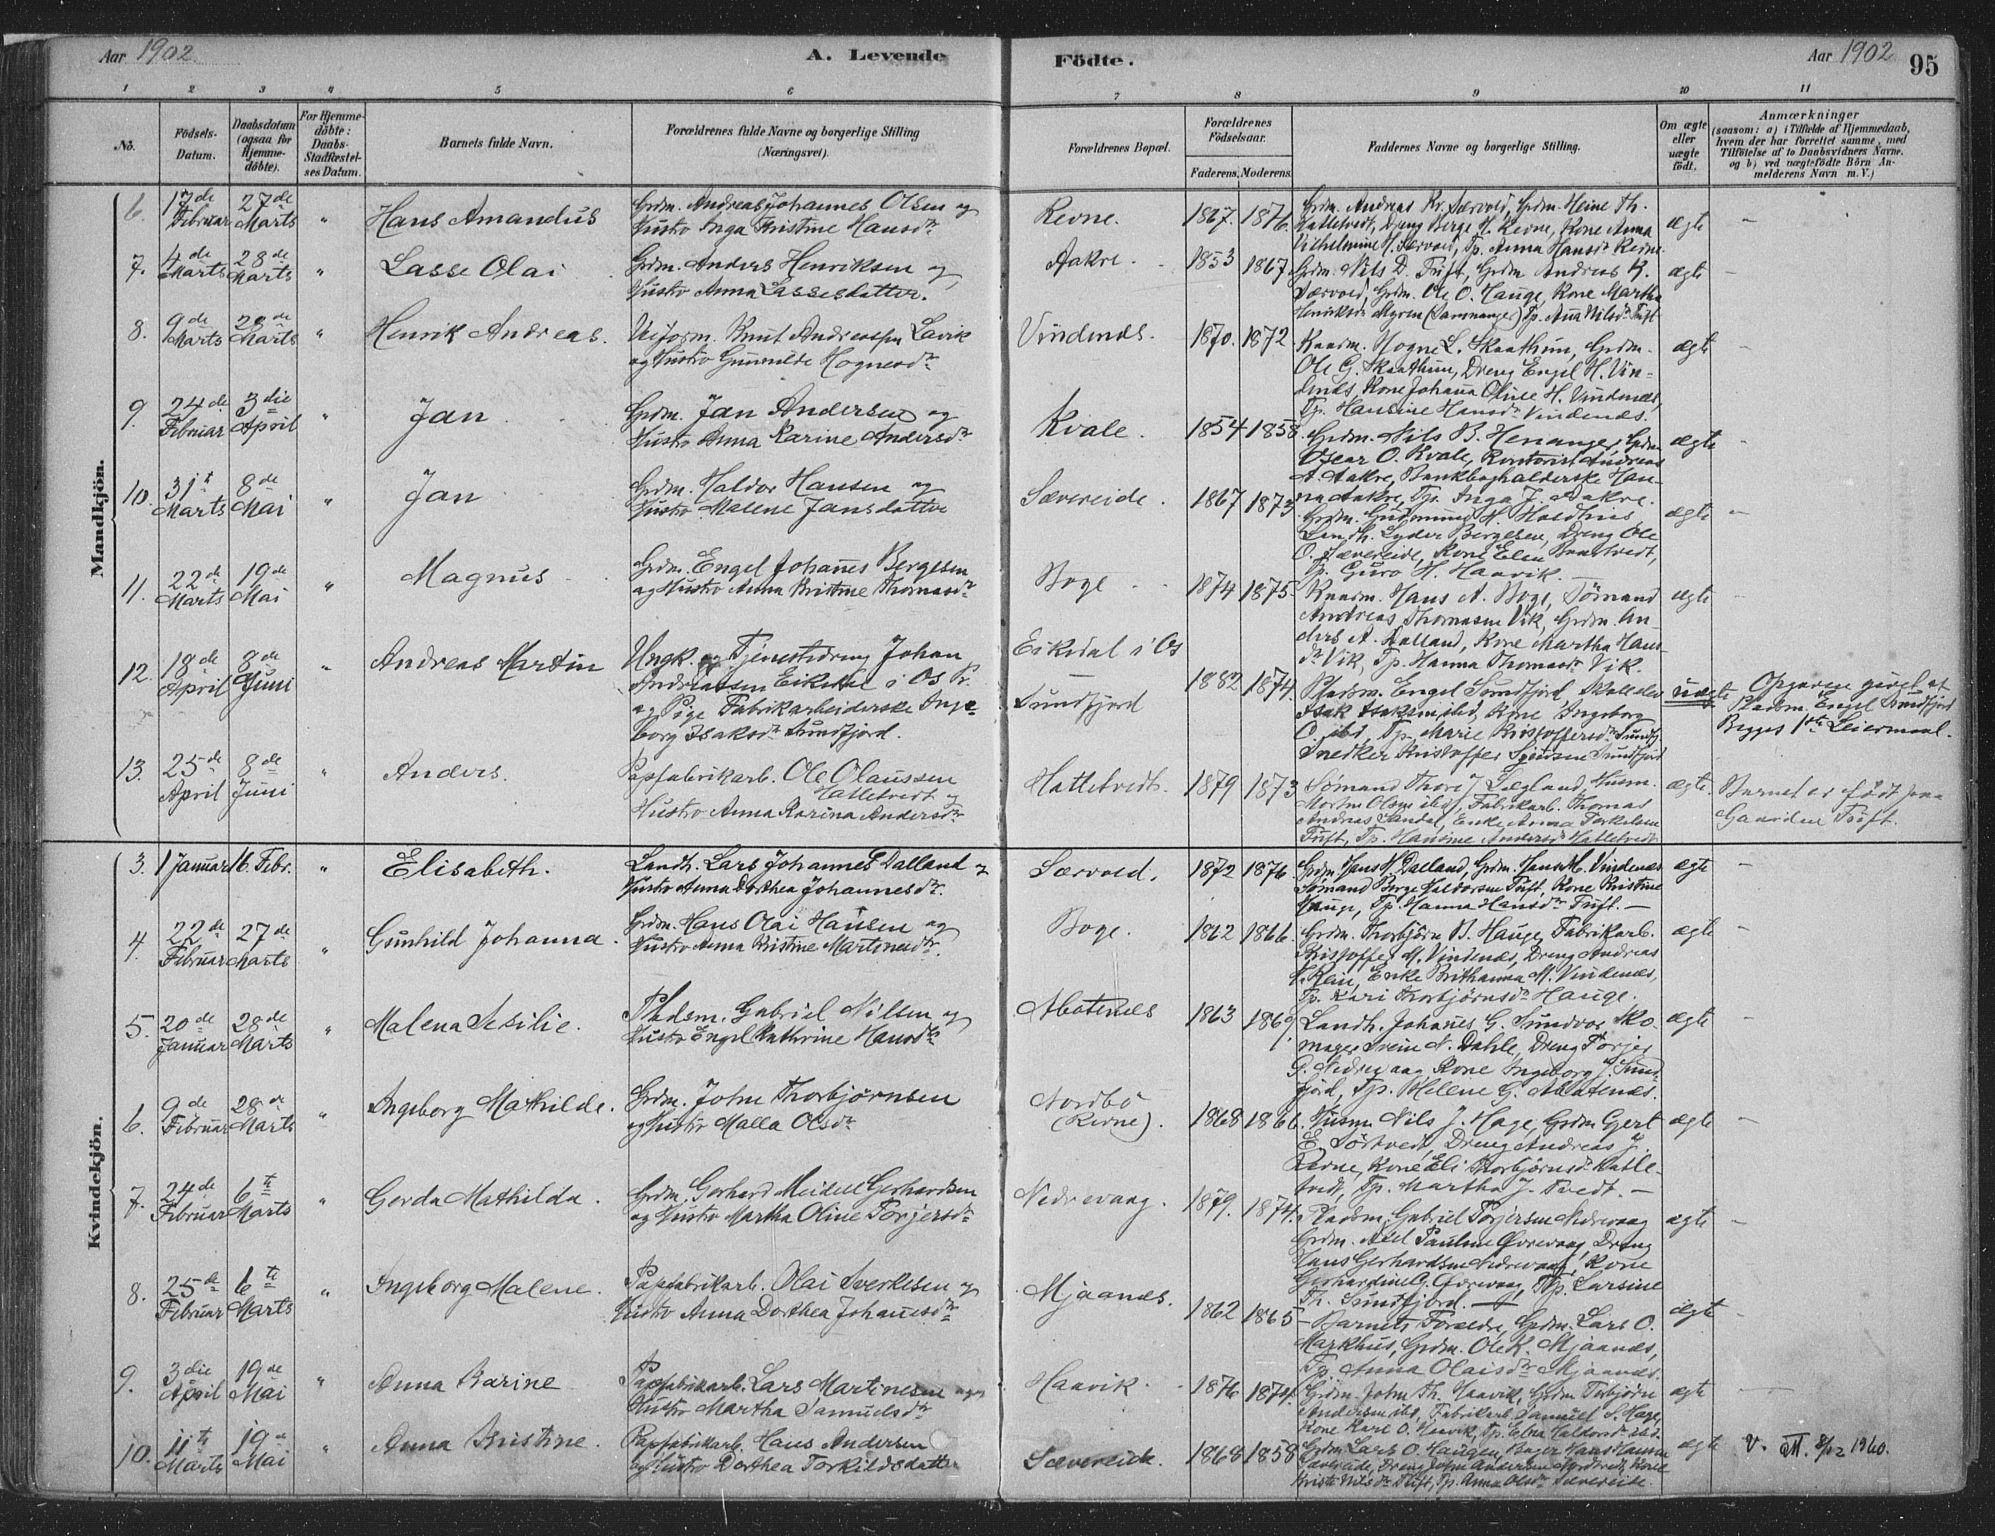 Aar 1902
A. Levende
Födte.
Aar 1902
95
1 2 3 4 5 6 7 8 9 10 11
No.
Födsels-
Datum.
Daabsdatum
(ogsaa for
Hjemme-
döbte).
For Hjemme-
döbte:
Daabs-
Stadfæstel-
ses Datum.
Barnets fulde Navn.
Forældrenes fulde Navne og borgerlige Stilling
(Næringsvei).
Forældrenes Bopæl.
Forældrenes
Födselsaar.
Faderens. Moderens.
Faddernes Navne og borgerlige Stilling.
Om ægte
eller
uægte
født.
Anmærkninger
(saasom: a) i Tilfælde af Hjemmedaab,
hvem der har forrettet samme, med
Tilföielse af to Daabsvidners Navne,
og b) ved uægtefödte Börn An-
melderens Navn m. V.)
Mandkjön.
6. 17de Februar 27de Marts " Hans Amandus
Grdm. Andreas Johannes Olsen og
Hustro Inga Kristine Hansdr.
Revne. 1867. 1876.
Grdm. Andreas Kr. Særvold, Grdm. Heine Th.
Hattetvedt, Dreng Berge H. Revne, Kone Anna
Vilhelmine H. Særvold, Tp. Anna Hansdr Revne.
ægte —
7. 4de Marts 28de Marts " Lasse Olai
Grdm. Anders Henriksen og
Hustro Anna Lassesdatter.
Aakre. 1853 1867
Grdm. Nils D. Tuft, Grdm Andreas K.
Særvold, Grdm. Ole O. Hauge, Kone Martha
Henriksdr Myren (Samnanger) Tp. Anna Nilsdr Tuft
ægte —
8. 9de Marts 28de Marts " Henrik Andreas.
Knut Andreassen Lavik
og Hustro Gunnilde Hognesdr.
Vindenæs. 1870. 1872.
Kaarm. Hogne L. Skaathun, Grdm.
Ole G. Skaathun, Dreng Engel H. Vin-
denæs, Kone Johanna Oline H. Vindenæs,
Tp. Hansine Hansdr Vindenæs.
ægte —
9. 24de Februar 3die April " Jan
Grdm. Jan Andersen og
Hustro Anna Karine Andersdr
Kvale. 1854 1858
Grdm. Nils B. Henanger, Grdm
Oscar O. Kvale, Kontorist Andreas
A. Aakre, Bankboghalderske Han-
na Aakre, Tp. Inga J. Aakre.
ægte —
10. 31t Marts 8de Mai " Jan
Grdm. Haldor Hansen og
Hustro Malene Jansdatter
Sævereide. 1867 1873
Grdm. Gudmund H. Holdhus,
Landh. Lyder Bergesen, Dreng Ole
O. Sævereide, Kone Elen
Tp. Guro H. Haavik.
ægte —
11. 22de Marts 19de Mai " Magnus
Grdm. Engel Johanes Bergesen
og Hustro Anna Kristine Thomasdr
Boge 1874 1875.
Kaarm. Hans A. Boge, Sømand
Andreas Thomasen Vik, Grdm. An-
ders A. Dalland, Kone Martha Hans-
dr Vik, Tp. Hanna Thomasdr Vik.
ægte —
12. 18de April 8de Juni " Andreas Martin
Ungk. og Tjenestedreng Johan
Andreassen Eikedal i Os Pr.
og Pige Fabrikarbeiderske Inge-
borg Isaksdr Sundfjord.
Eikedal i Os
Sundfjord
1882 1874.
Pladsm. Engel Sundfjord,
Isak Isaksen ibid, Kone Ingeborg
O. ibd, Tp. Marie Kristoffersdr Sundfj.
Snedker Kristoffer Sjursen Sundfjord
uægte
Opgaven givet af
Pladsm. Engel Sundfjord
Begges 1ste Leiermaal.
13. 25de April 8de Juni " Anders.
Papfabrikarb. Ole Olaussen
Hattetvedt og
Hustro Anna Karina Andersdr
Hattetvedt. 1879 1873
Sømand Thore J. Lægland, Husm.
Morten Olsen ibd, Fabrikarb. Thomas
Andreas Sandal, Enke Anna Torkelsen
Tuft, Tp. Hansine Andersdr Hattetvedt
ægte
Barnet er født paa
Gaarden Tuft.
Kvindekjön.
3. 1 Januar 16 Febr. " Elisabeth.
Landh. Lars Johannes Dalland og
Hustro Anna Dorthea Johannesdr.
Særvold. 1872 1876
Grdm. Hans N. Dalland, Grdm. Hans M. Vindenæs
Sømand Berge Haldorsen Tuft, Kone Kristine
Hauge, Tp. Hanna Hansdr Tuft. —
ægte —
4. 22de Februar 27de Marts " Gunhild Johanna.
Grdm. Hans Olai Hansen og
Hustro Anna Kristine Martinusdr.
Boge. 1862 1866.
Grdm. Thorbjörn N. Hauge, Fabrikarb.
Kristoffer M. Vindenæs, Dreng Andreas
N. Rein, Enke Brithanna M. Vindenæs,
Tp. Kari Thorbjørnsdr Hauge.
ægte —
5. 20de Januar 28de Marts " Malena Sesilie.
Pladsm. Gabriel Nilsen og
Hustro Engel Kathrine Hansdr
Abotenæs 1863 1869.
Landh. Johanes G. Sundvor, Sko-
mager Svein N. Dahle, Dreng Torjer
G. Nedrevaag, Kone Ingeborg J. Sund-
fjord, Tp. Helene G. Abotenæs.
ægte —
6. 9de Februar 28de Marts " Ingeborg Mathilde.
Grdm. John Thorbjørnsen
og Hustro Malla Olsdr
Nordbø
(Revne). 1868 1866.
Husm. Nils J. Hage, Grdm Gjert
E. Sörtvedt, Dreng Andreas J.
Revne, Kone Eli Thorbjørnsdr Hatle-
tvedt, Tp. Martha J. Tvedt. —
ægte —
7. 24de Februar 6te Marts " Gerda Mathilda.
Grdm. Gerhard Meidell Gerhardsen
og Hustro Martha Oline Torjersdr
Nedrevaag. 1879. 1874.
Pladsm. Gabriel Torjersen Nedrevaag
Grdm. Axel Paulsen Øvrevaag, Dreng
Hans Gerhardsen Nedrevaag, Kone
Gerhardine G. Øvrevaag, Tp. Larsine
Th. Sundfjord. —
ægte —
8. 25de Februar 6te Marts " Ingeborg Malene.
Papfabrikarb. Olai Sverkesen og
Hustro Anna Dorthea Johanesdr
Mjaanæs. 1862 1865
— Barnets Forældre, Grdm. Lars O.
Markhus, Grdm. Ole K. Mjaanæs,
Tp. Anna Olaisdr Mjaanæs.
ægte —
9. 3die April 19de Mai " Anna Karine
Papfabrikarb. Lars Martinesen og
Hustro Martha Samuelsdr
Haavik. 1876 1874.
Grdm. John Th. Haavik, Grdm Torbjørn
Andersen ibd, Fabrikarb. Samuel S. Hage,
Kone Kari O. Haavik, Tp. Elna Haldorsdr ibd.
ægte —
10. 11te Marts 19de Mai " Anna Kristine.
Papfabrikarb. Hans Andersen
og Hustro Dorthea Torkildsdatter
Sævereide. 1868 1858
Grdm Lars O. Haugen, Bager Hans Hansen
Sævereide, Dreng John Andersen Kone
Nilsdr Tuft, Tp. Anna Olsdr Sævereide
ægte
V. 8/12 1960.